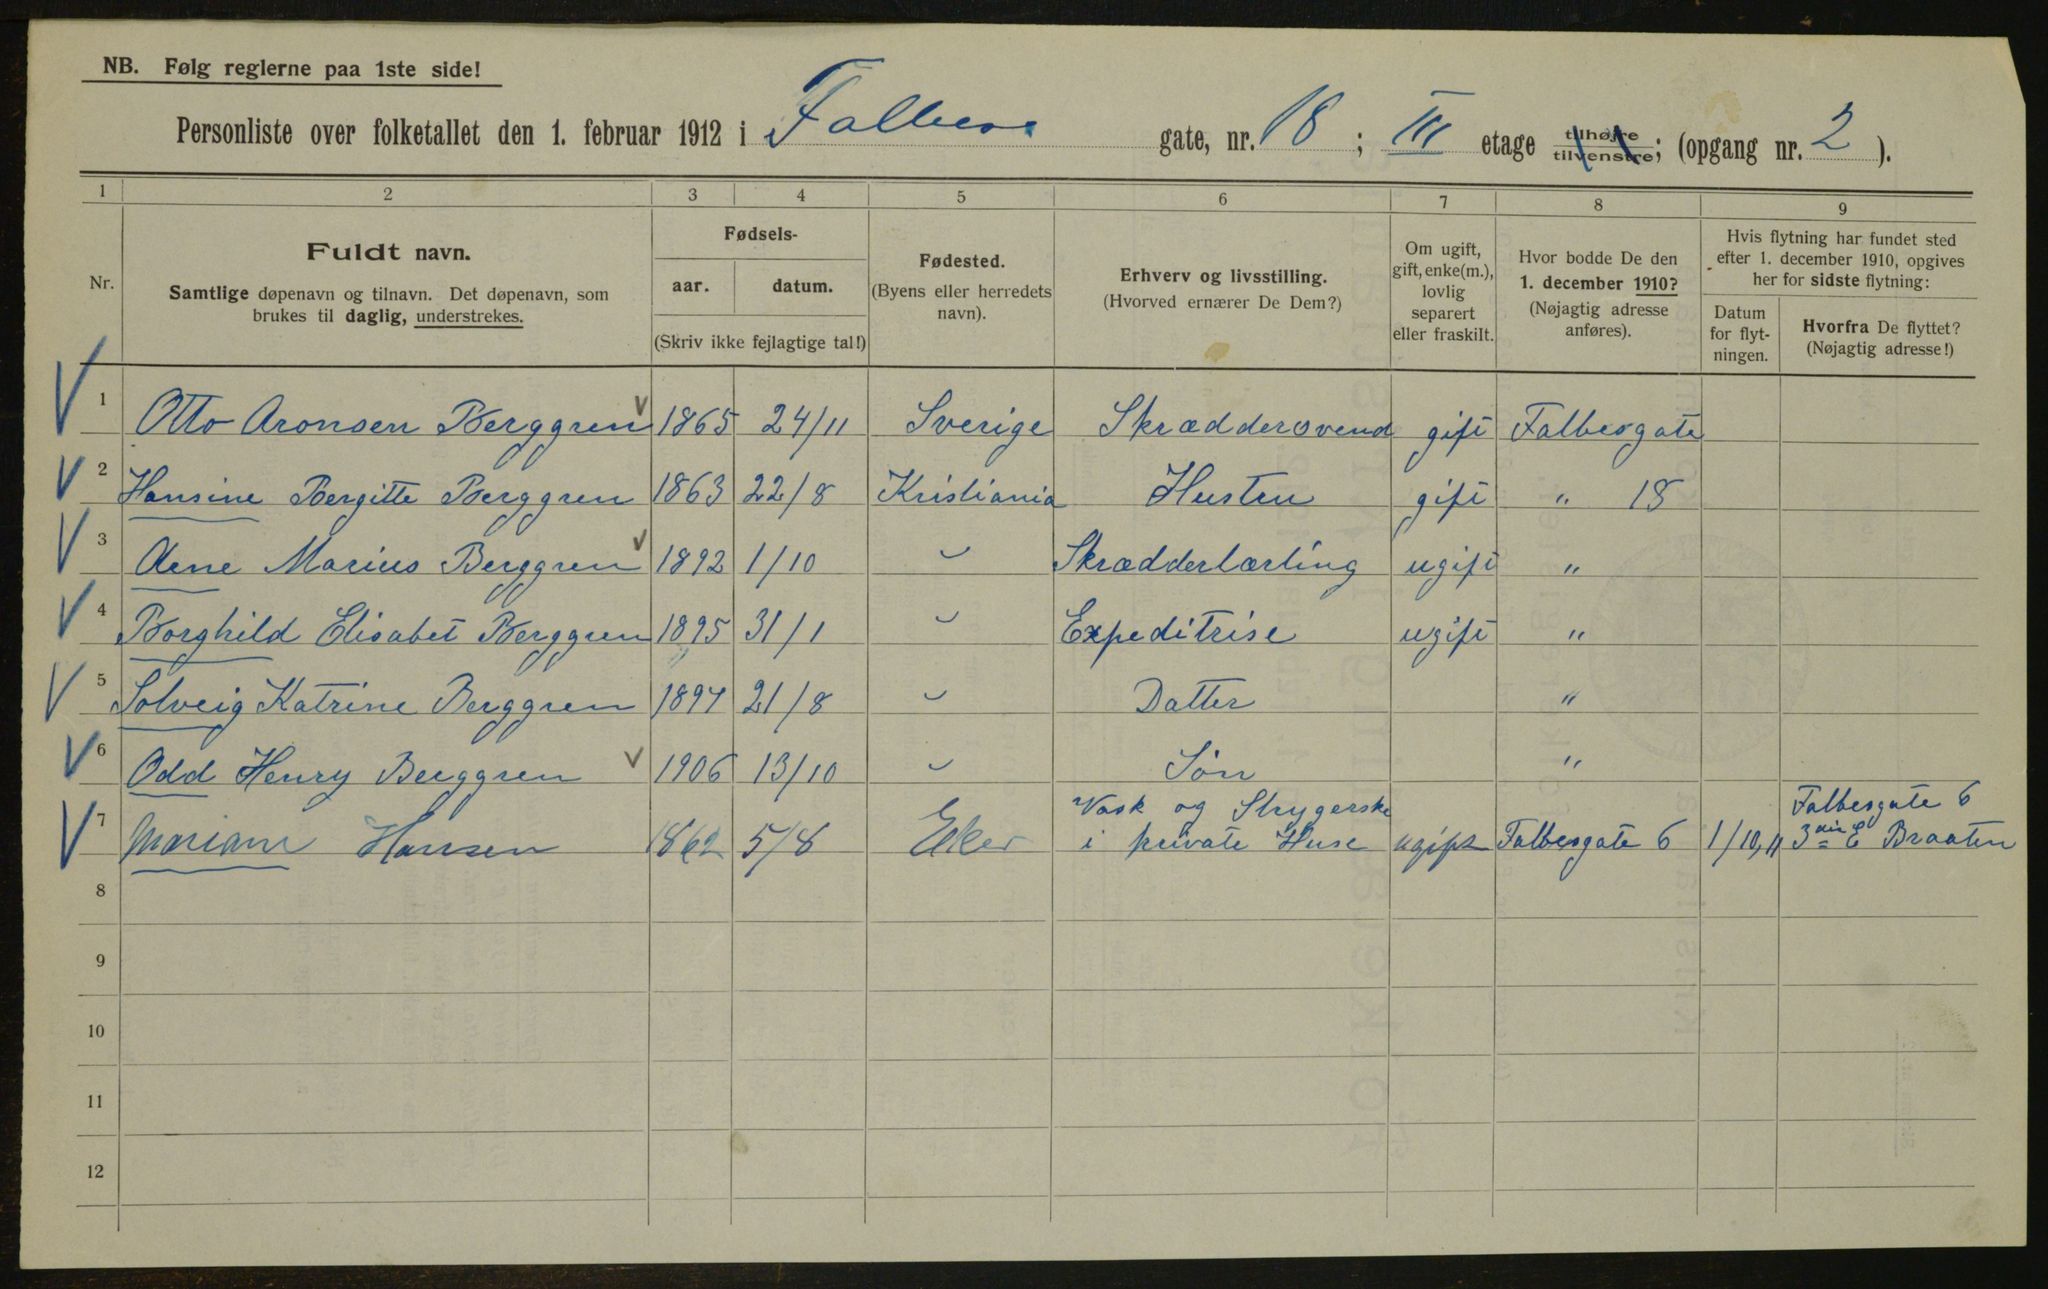 NB. Følg reglerne paa 1ste side!
Personliste over folketallet den 1. februar 1912 i Falbes gate, nr. 18 ; III etage tilhøjre tilvenstre; (opgang nr. 2 ).
1 2 3 4 5 6 7 8 9
Nr.
Fuldt navn.
Samtlige døpenavn og tilnavn. Det døpenavn, som
brukes til daglig, understrekes.
Fødsels-
aar. datum.
(Skriv ikke fejlagtige tal!)
Fødested.
(Byens eller herredets
navn).
Erhverv og livsstilling.
(Hvorved ernærer De Dem?)
Om ugift,
gift, enke(m.),
lovlig
separert
eller fraskilt.
Hvor bodde De den
1. december 1910?
(Nøjagtig adresse
anføres).
Hvis flytning har fundet sted
efter 1. december 1910, opgives
her for sidste flytning:
Datum
for flyt-
ningen.
Hvorfra De flyttet?
(Nøjagtig adresse!)
1 Otto Aronsen Berggren 1865 24/11 Sverige Skræddersvend gift Falbesgate
2 Hansine Bergitte Berggren 1863 22/8 Kristiania Husten gift " 18
3 Arne Marius Berggren 1892 1/10 " Skrædderlærling ugift "
4 Borghild Elisabet Berggren 1895 31/1 " Expeditrise ugift "
5 Solveig Katrine Berggren 1897 21/8 " Datter "
6 Odd Henry Berggren 1906 13/10 " Søn "
Vask og Strygerske Falbesgate 6
7 Mariane Hansen 1862 5/8 Eker i private Huse ugift Falbesgate 6 1/10, 11 3die E Braaten
8
9
10
11
12